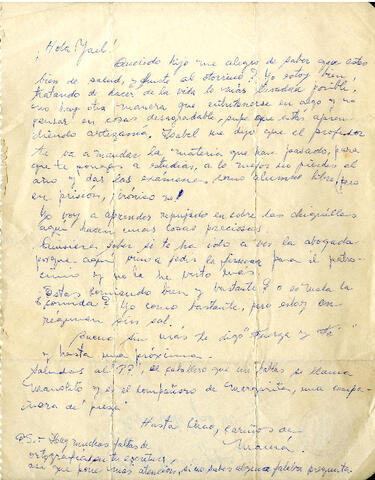 ¡Hola Yael!
Querido hijo me alegro de saber que estés
bien de salud, y fuiste al otorrino? Yo estoy bien,
tratando de hacer de la vida lo más llevadera posible,
no hay otra manera que entretenerse en algo y no
pensar en cosas desagradable, supe que estás apren
diendo artezanía, Isabel me dijo que el profesor
te va a mandar la materia que han pasado, para
que te pongas a estudiar, a lo mejor no pierdas el
año y das los exámenes como alumno libre, pero
en prisión, ¡irónico no!
Yo voy a aprender repujado en cobre las chiquillas
aquí hacen unas cosas preciosas.
Quisiera saber si te ha vuelto a ver la abogada
porque aquí vino a pedir la firma para el patro-
cinio y no la he visto más.
Estas comiendo bien y bastante? o es mala la
comida? Yo como bastante, pero estoy en
régimen sin sal.
Bueno sin más te digo "Fuerza y Fe"
y hasta una próxima.
Saludos al, el caballero que me hablas se llama
y es el compañero de Margarita, una compa-
ñera de pieza.
Hasta Chao, cariños de
Mamá.
P.S. - Hay muchas faltas de
ortografía en tu escritura,
así que pone más atención, si no sabes alguna palabra pregunta.